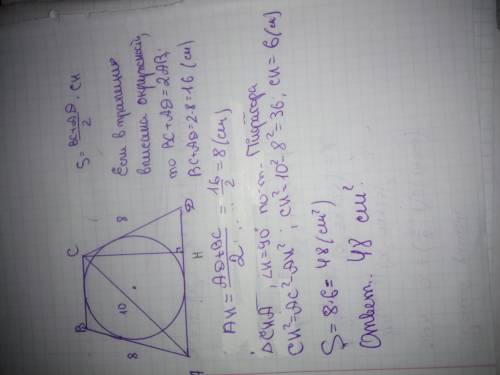 S = (BC+AD)/2 · CH
Если в трапецию
вписана окружность,
то BC+AD=2AB;
BC+AD=2·8=16 (см)
B
C
8
10
8
A
H
D
AH = (AD+BC)/2 = 16/2 = 8 (см)
ΔCHA, ∠H=90° по т. Пифагора
CH²=AC²-AH²; CH²=10²-8²=36; CH=6 (см)
S=8·6=48 (см²)
Ответ. 48 см²